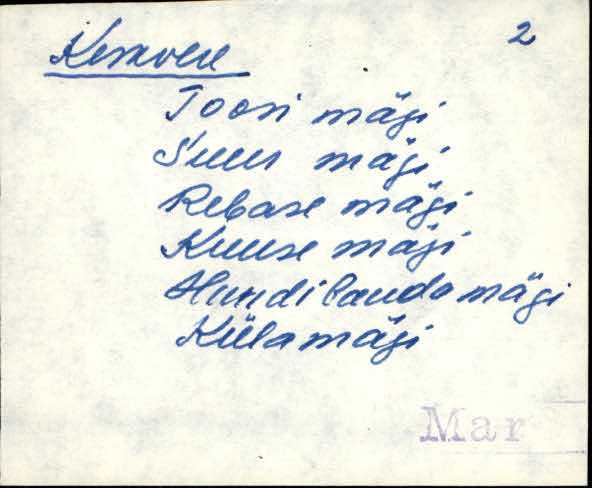 2
Toosi mägi
Suur mägi
Rebase mägi
Kuuse mägi
Hundi lauda mägi
Küla mägi
Mar